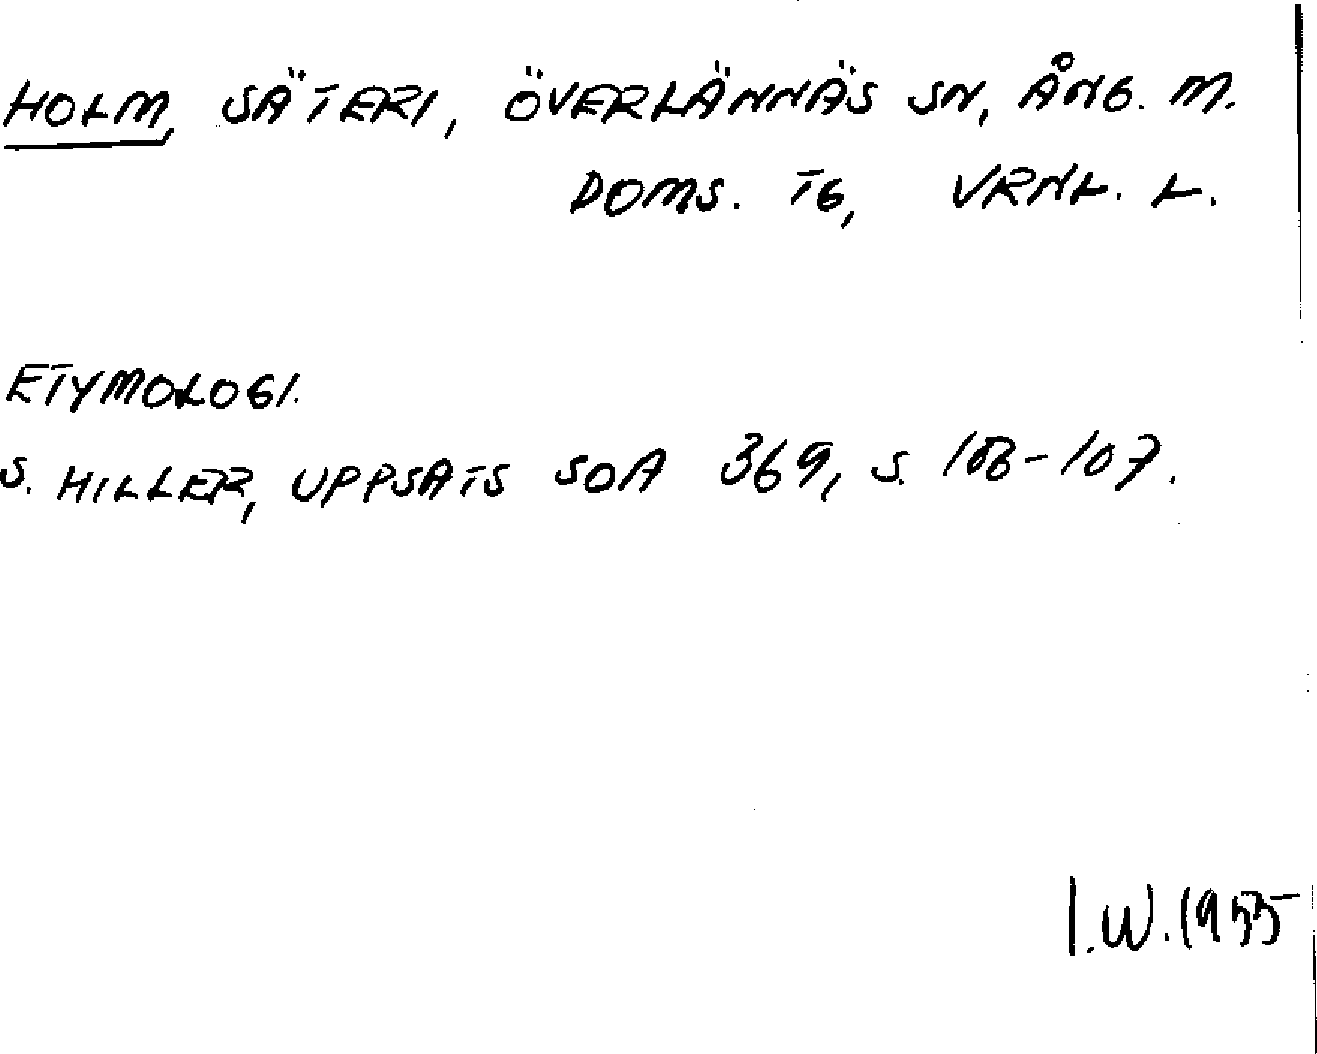 HOLM, SÄTERI, ÖVERLÄNNÄS SN, ÅNG. M.
DOMS. TG, VRNL. L.
ETYMOLOGI.
S. HILLER, UPPSATS SOA 369, S. 106-107.
I.W. 1955